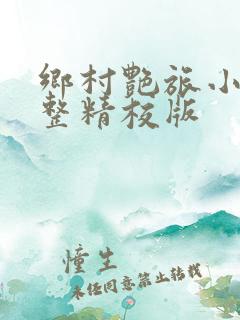 鄉村艷旅小
整精校版
憧生
未经同意禁止转载